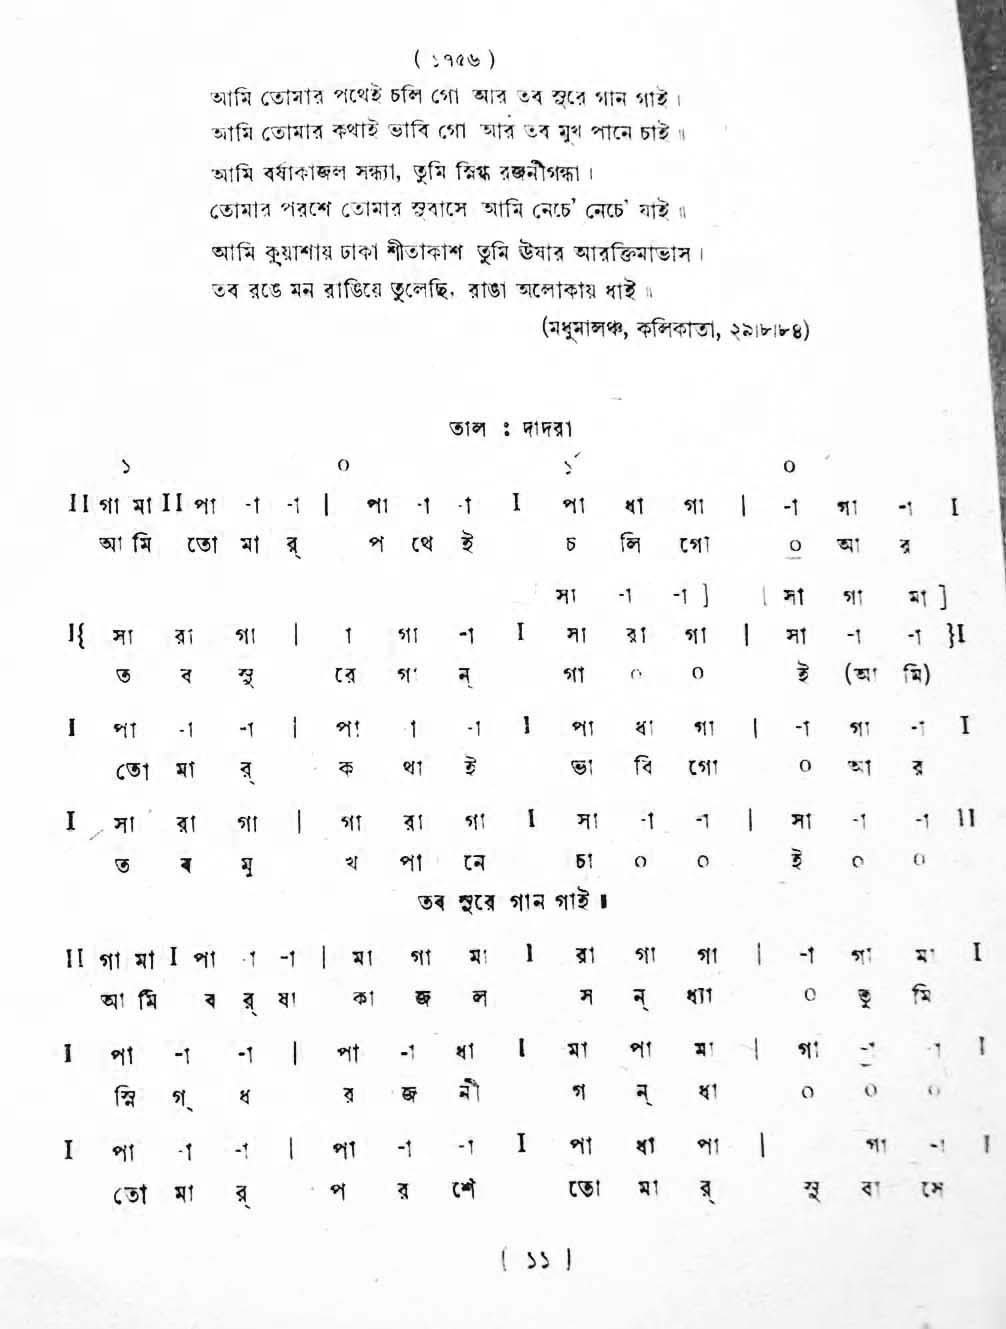 ( ১৭৫৬ )
আমি তোমার পথেই চলি গো আর তব সুরে গান গাই ।
আমি তোমার কথাই ভাবি গো আর তব মুখ পানে চাই ॥
আমি বর্ষাকাজল সন্ধ্যা, তুমি স্নিগ্ধ রজনীগন্ধা ।
তোমার পরশে তোমার সুবাসে আমি নেচে' নেচে' যাই ॥
আমি কুয়াশায় ঢাকা শীতাকাশ তুমি ঊষার আরক্তিমাভাস ।
তব রঙে মন রাঙিয়ে তুলেছি, রাঙা অলোকায় ধাই ॥
(মধুমালঞ্চ, কলিকাতা, ২৯।৮।৮৪)
তাল : দাদরা
১ ০ ১´ ০
II গা মা II পা -া -া | পা -া -া I পা ধা গা | -া গা -া I
আ মি তো মা র্ প থে ই চ লি গো ০ আ র
সা -া -া ] [ সা গা মা ]
I{ সা রা গা | া গা -া I সা রা গা | সা -া -া }I
ত ব সু রে গা ন্ গা ০ ০ ই (আ মি)
I পা -া -া | পা া -া I পা ধা গা | -া গা -া I
তো মা র্ ক থা ই ভা বি গো ০ আ র
I সা রা গা | গা রা গা I সা -া -া | সা -া -া II
ত ব মু খ পা নে চা ০ ০ ই ০ ০
তব সুরে গান গাই ॥
II গা মা I পা -া -া | মা গা মা I রা গা গা | -া গা মা I
আ মি ব র্ ষা কা জ ল স ন্ ধ্যা ০ তু মি
I পা -া -া | পা -া ধা I মা পা মা | গা -া -া I
স্নি গ্ ধ র জ নী গ ন্ ধা ০ ০ ০
I পা -া -া | পা -া -া I পা ধা পা | গা -া I
তো মা র্ প র শে তো মা র্ সু বা সে
( ১১ )